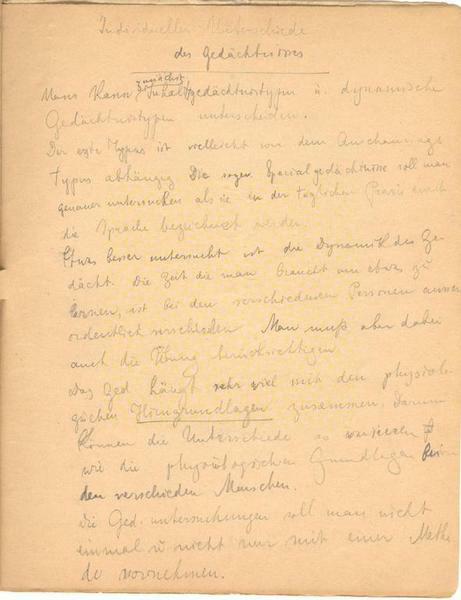 Individuelle Unterschiede
des Gedächtnisses
Man kann zunächst Inhaltsgedächtnistypen u. dynamische
Gedächtnistypen unterscheiden.
Der erste Typus ist vielleicht von dem Anschauungs
typus abhängig Die sogen. Spezialgedächtnisse soll man
genauer untersuchen als sie in der täglichen Praxis durch
die Sprache bezeichnet werden.
Etwas besser untersucht ist die Dynamik des Ge
dächt. Die Zeit die man braucht um etwas zu
lernen, ist bei den verschiedenen Personen ausser
ordentlich verschieden Man muß aber dabei
auch die Übung berücksichtigen
Das Ged hängt sehr viel mit den physiolo
gischen Hirngrundlagen zusammen, Darum
können die Unterschiede so variieren
wie die physiologischen Grundlagen beim
den verschieden Menschen.
Die Ged. untersuchungen soll man nicht
einmal u nicht nur mit einer Metho
de vornehmen.